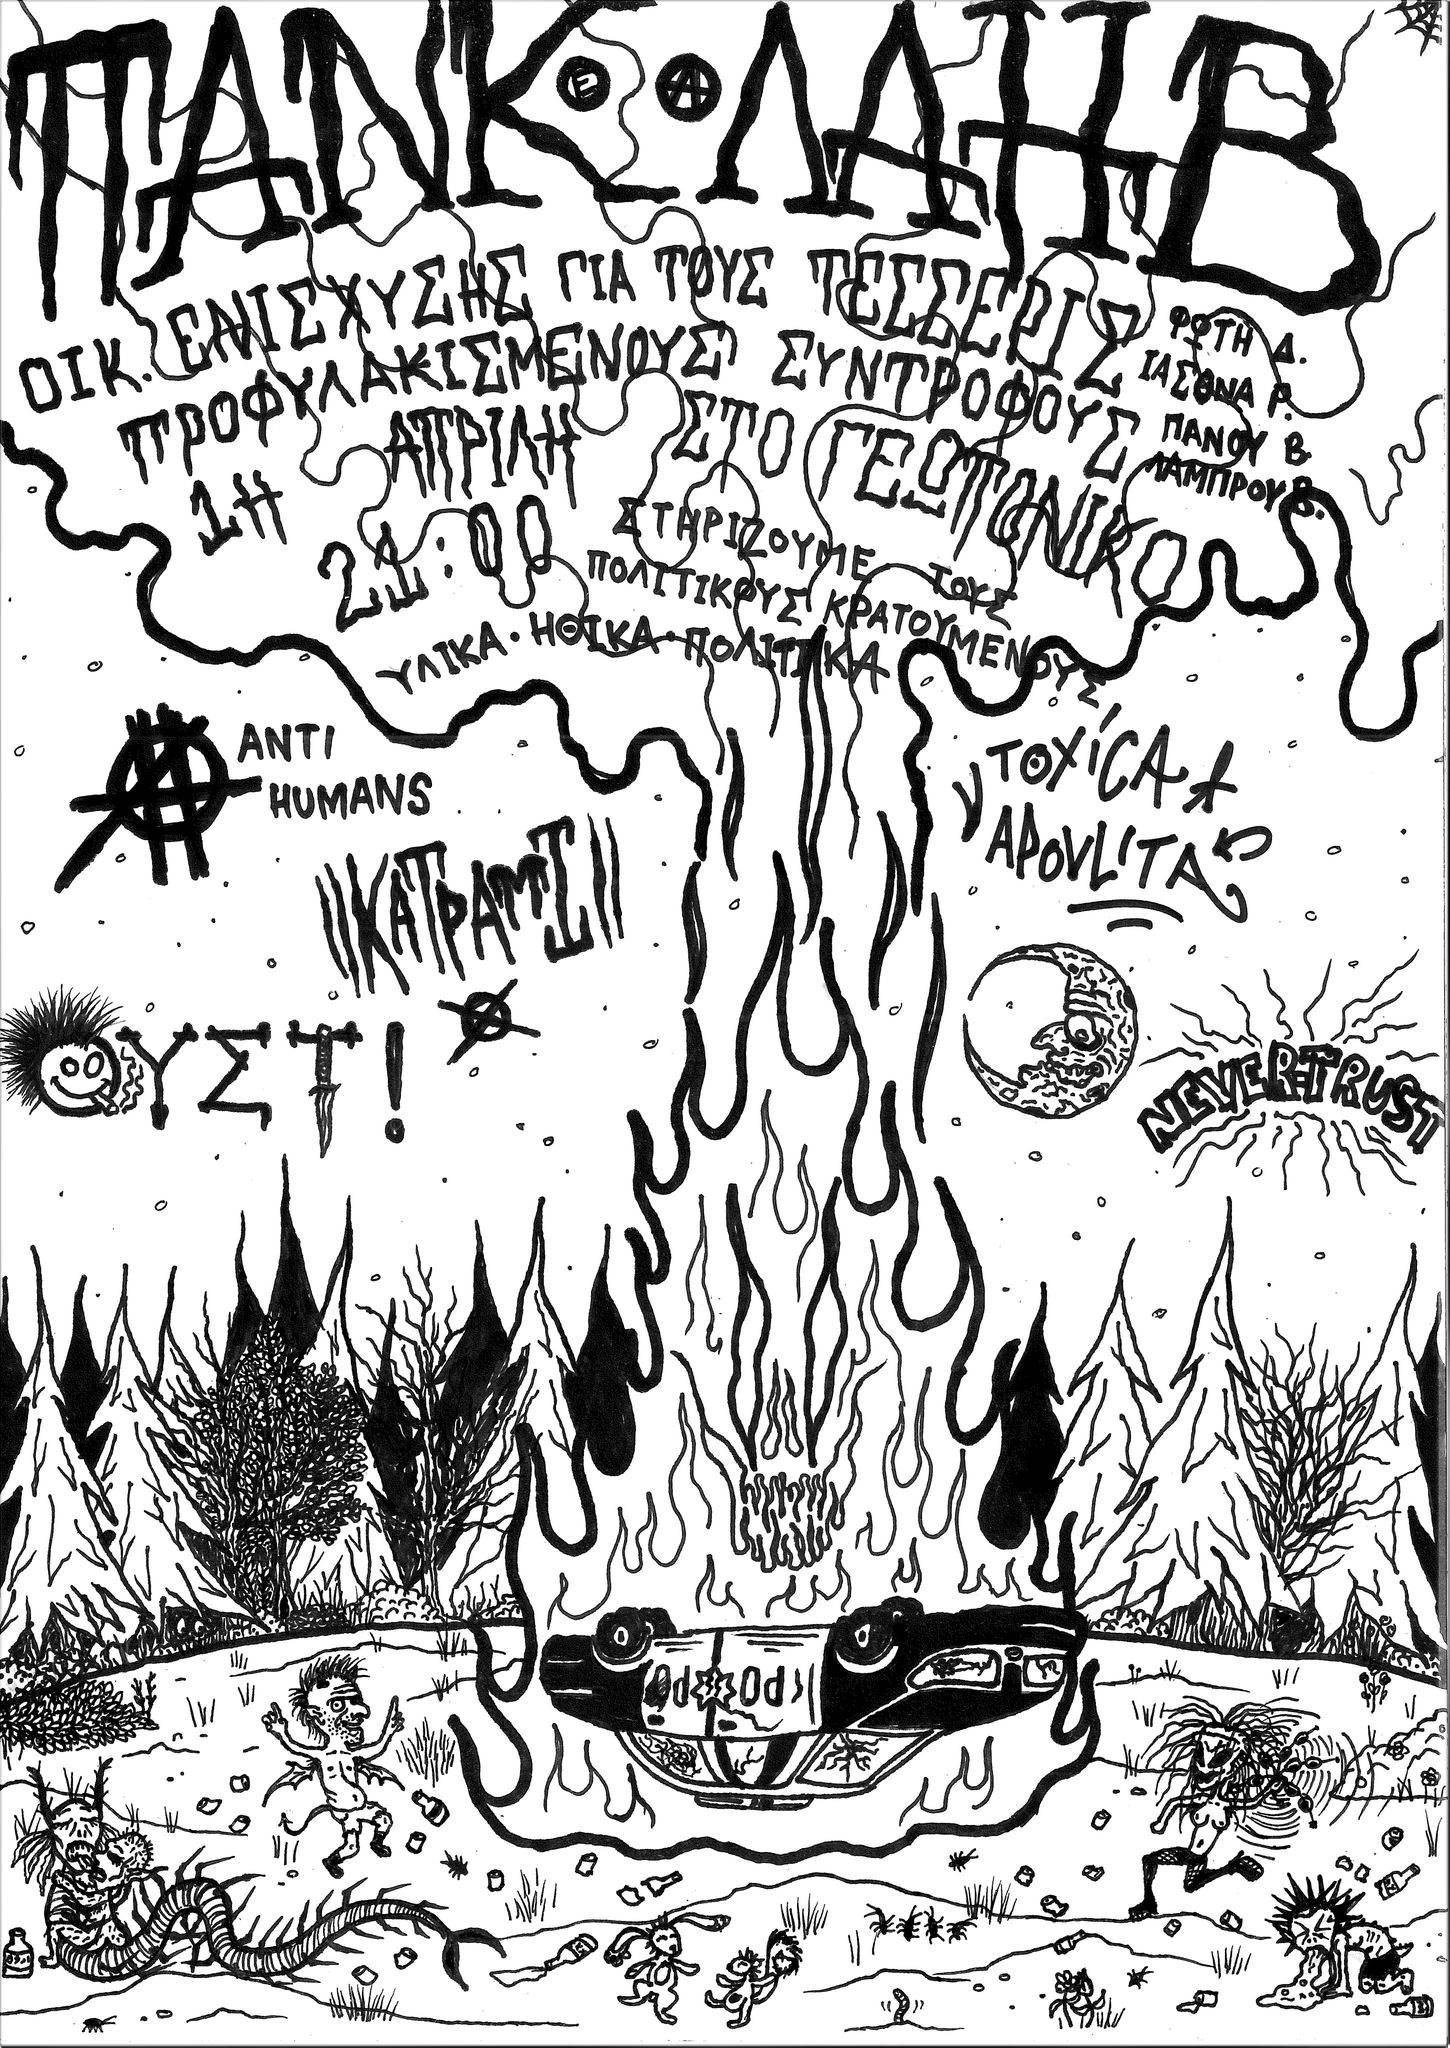 ΠΑΝΚ Ε Α ΛΑΗΒ
ΟΙΚ. ΕΝΙΣΧΥΣΗΣ ΓΙΑ ΤΟΥΣ ΤΕΣΣΕΡΙΣ
ΠΡΟΦΥΛΑΚΙΣΜΕΝΟΥΣ ΣΥΝΤΡΟΦΟΥΣ
ΦΩΤΗ Δ.
ΙΑΣΟΝΑ Ρ.
ΠΑΝΟΥ Β.
ΛΑΜΠΡΟΥ Β.
1Η ΑΠΡΙΛΗ ΣΤΟ ΓΕΩΠΟΝΙΚΟ
21:00
ΣΤΗΡΙΖΟΥΜΕ ΤΟΥΣ
ΠΟΛΙΤΙΚΟΥΣ ΚΡΑΤΟΥΜΕΝΟΥΣ
ΥΛΙΚΑ · ΗΘΙΚΑ · ΠΟΛΙΤΙΚΑ
ANTI
HUMANS
ΚΑΤΡΑΜΙ
ΟΥΣΤ!
TOXiCA
APOVLITA
NEVER-TRUST